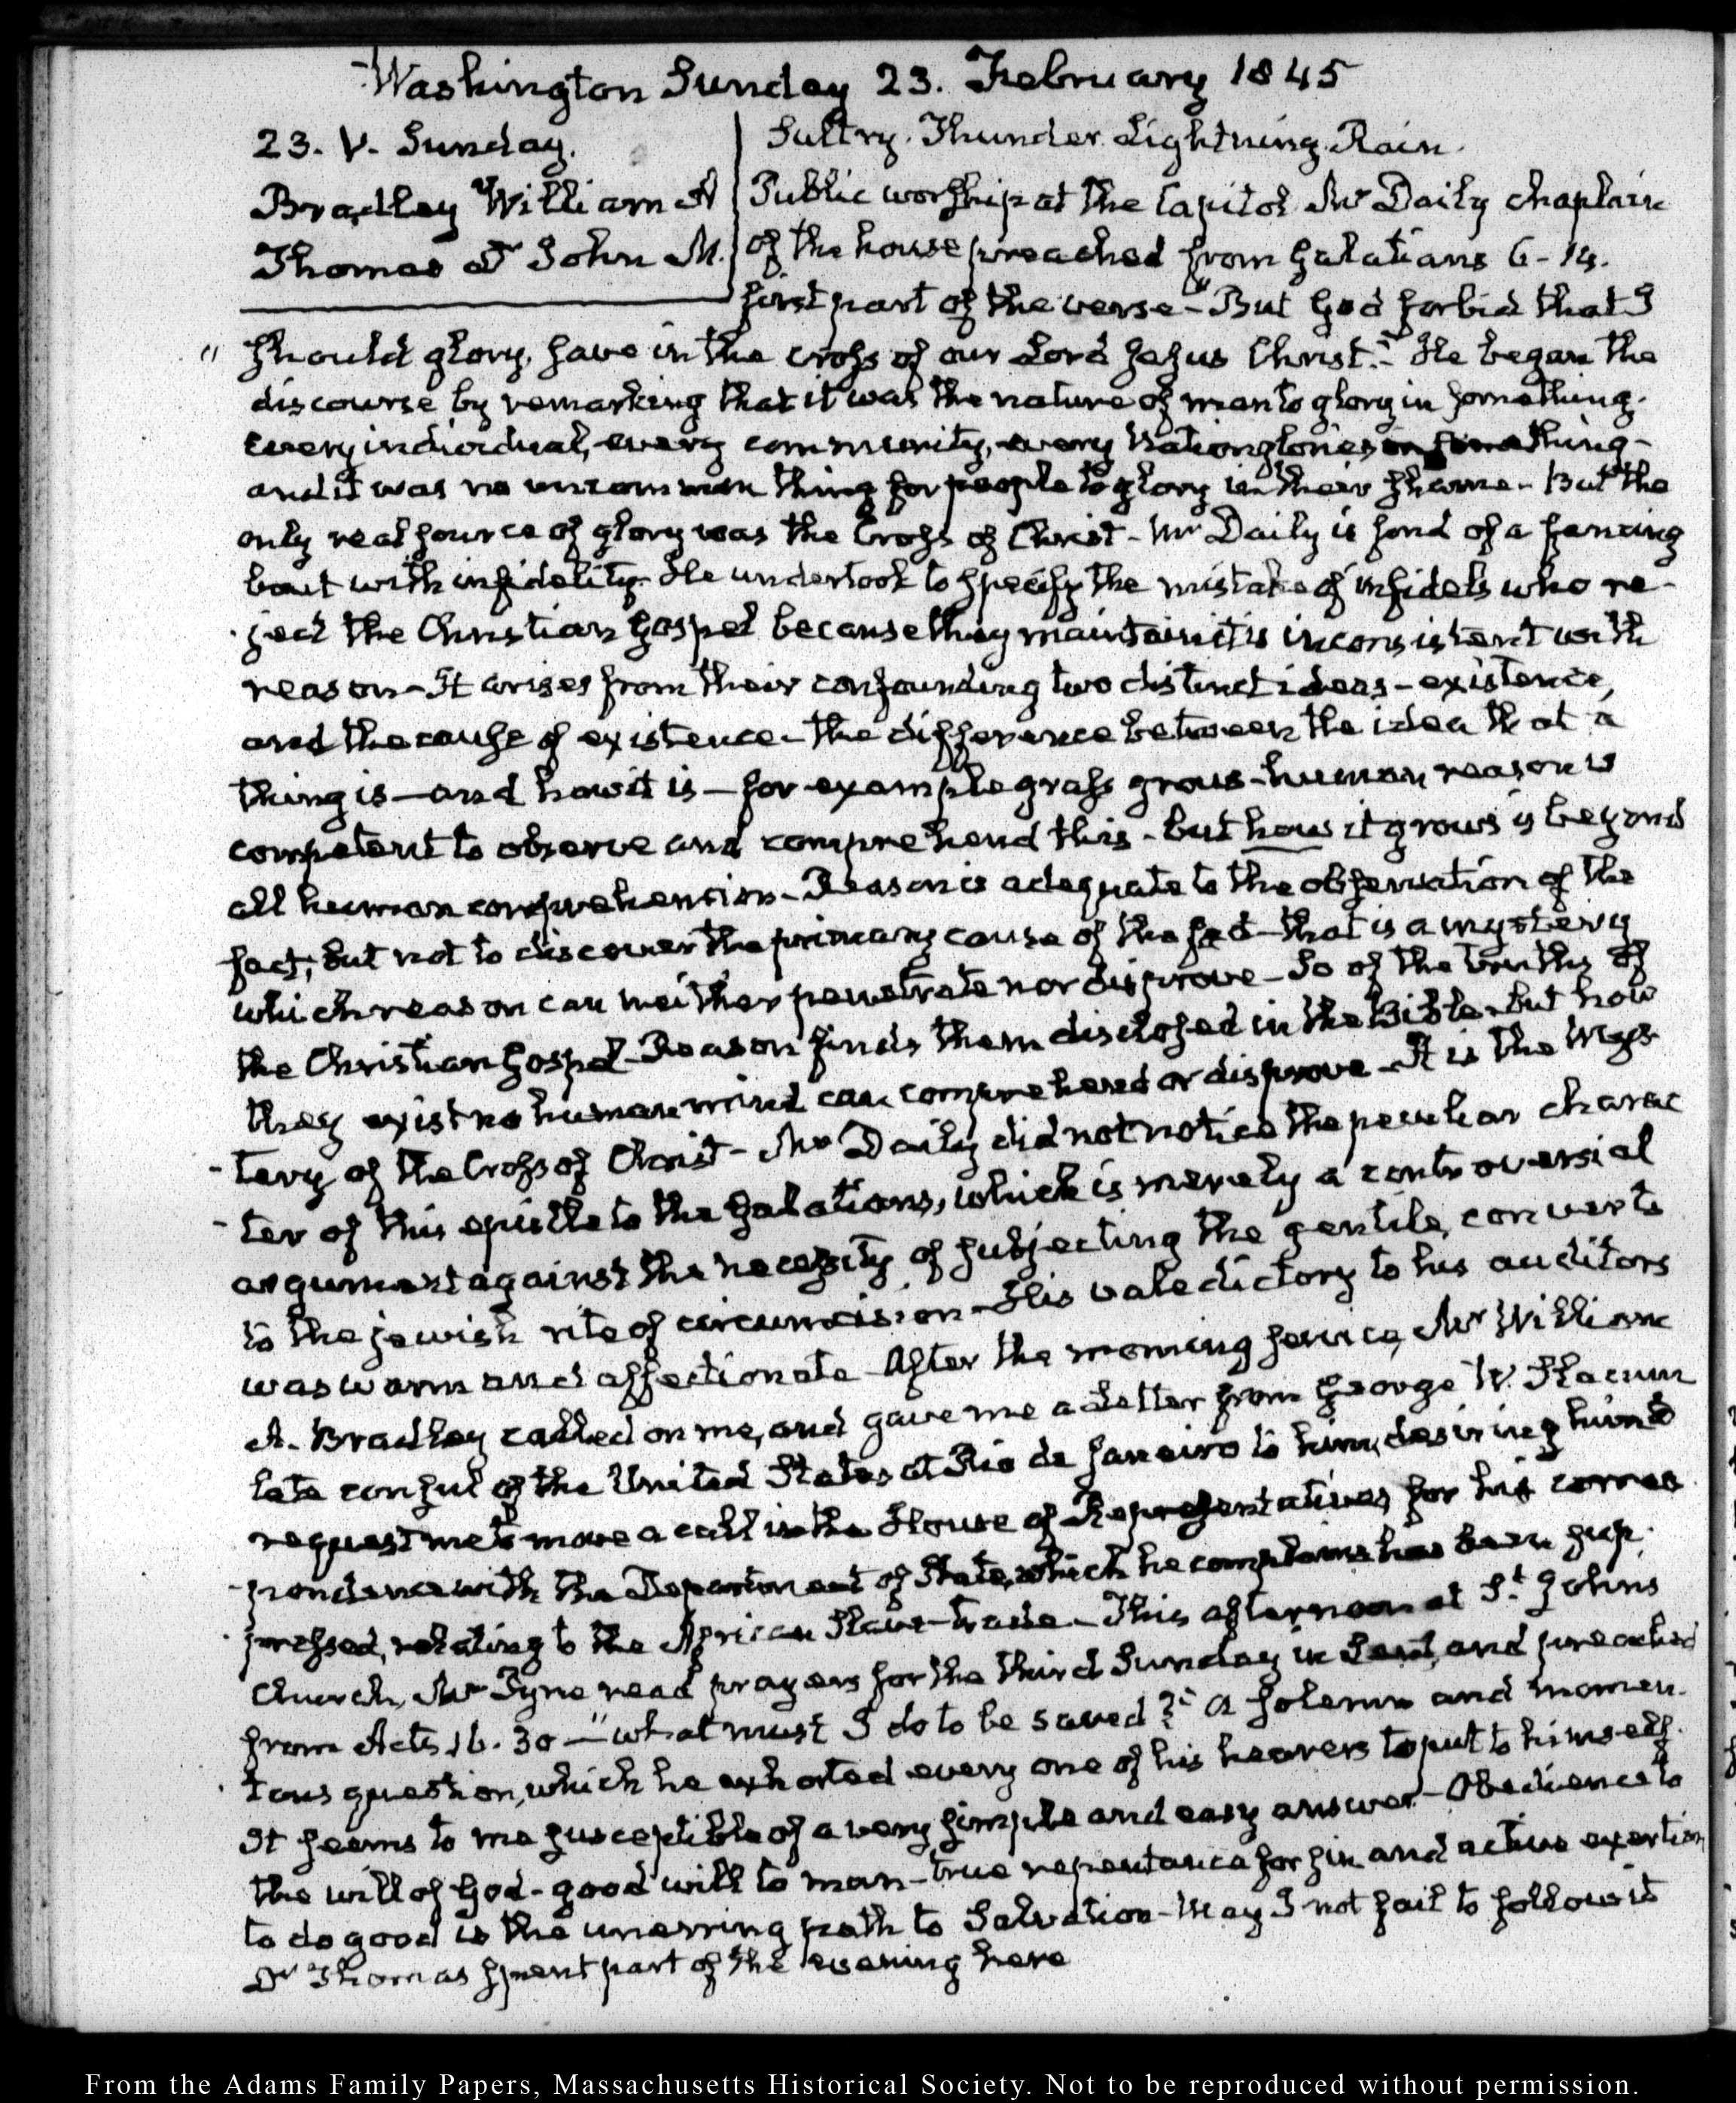 Washington Sunday 23. February 1845
23. V. Sunday.
Bradley William A
Thomas Dr John M.
Sultry. Thunder. Lightning. Rain.
Public worship at the Capitol Mr Daily chaplain
of the house preached from Galatians 6-14.
first part of the verse—"But God forbid that I
" should glory, save in the cross of our Lord Jesus Christ."—He began the
discourse by remarking that it was the nature of man to glory in something.
every individual, every community, every Nation glories in something—
and it was no uncommon thing for people to glory in their shame—But the
only real source of glory was the Cross of Christ—Mr Daily is fond of a fencing
bout with infidelity. He undertook to specify the mistake of infidels who re-
-ject the Christian gospel because they maintain it is inconsistent with
reason—It arises from their confounding two distinct ideas—existence,
and the cause of existence—the difference between the idea that a
thing is—and how it is—for example grass grows—human reason is
competent to observe and comprehend this—but how it grows is beyond
all human comprehension—Reason is adequate to the observation of the
fact, but not to discover the primary cause of the fact—that is a mystery
which reason can neither penetrate nor disprove—So of the truths of
the Christian Gospel—Reason finds them disclosed in the Bible—but how
they exist no human mind can comprehend or disprove—It is the Mys-
-tery of the Cross of Christ—Mr Daily did not notice the peculiar charac
-ter of this epistle to the Galatians, which is merely a controversial
argument against the necessity of subjecting the gentile, converts
to the jewish rite of circumcision—His valedictory to his auditors
was warm and affectionate—After the morning service, Mr William
A. Bradley called on me, and gave me a Letter from George W. Slacum
late consul of the United States at Rio de Janeiro to him, desiring him to
request me to move a call in the House of Representatives for his corres
-pondence with the Department of State, which he complains has been sup-
-pressed, relating to the African Slave-trade—This afternoon at St. Johns
Church, Mr Tyng read prayers for the third Sunday in Lent, and preached
from Acts 16. 30—"what must I do to be saved?" a solemn and momen-
-tous question, which he exhorted every one of his hearers to put to himself.
It seems to me susceptible of a very simple and easy answer—Obedience to
the will of God—good will to man—true repentance for sin and active exertion
to do good is the unerring path to Salvation—May I not fail to follow it
Dr Thomas spent part of the evening here
From the Adams Family Papers, Massachusetts Historical Society. Not to be reproduced without permission.